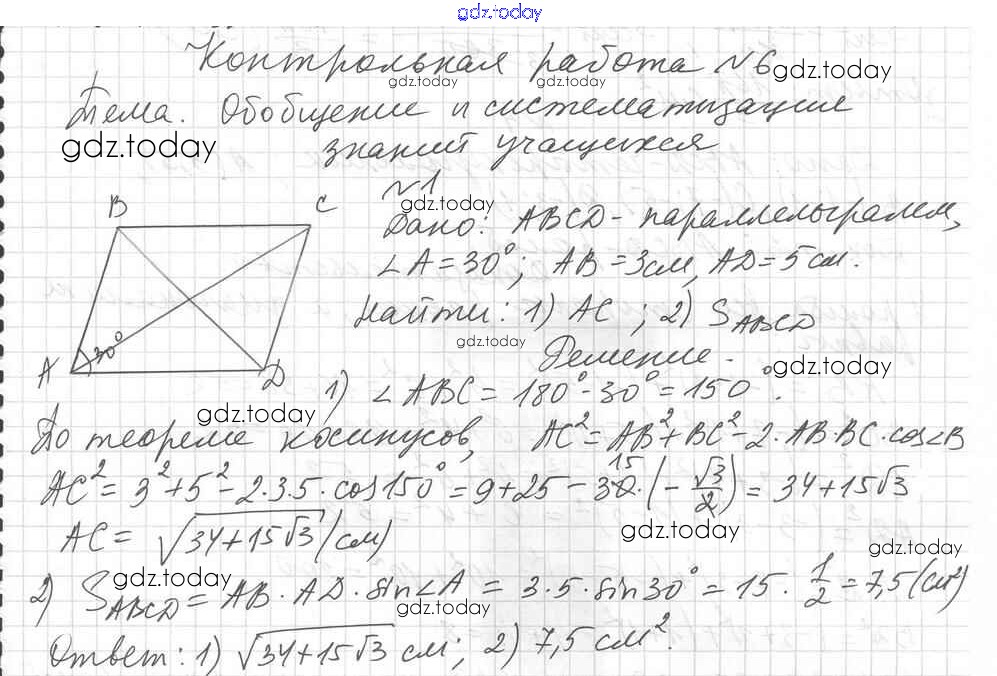 gdz.today
Контрольная работа №6 gdz.today
gdz.today gdz.today
Тема. Обобщение и систематизация
gdz.today знаний учащихся
№1
gdz.today
B C Дано: ABCD - параллелограмм,
∠A = 30°; AB = 3см, AD = 5см.
Найти: 1) AC ; 2) S_ABCD
gdz.today
Решение. gdz.today
A 30° D
1) ∠ABC = 180° - 30° = 150°.
gdz.today
По теореме косинусов, AC² = AB² + BC² - 2·AB·BC·cos∠B
AC² = 3² + 5² - 2·3·5·cos150° = 9 + 25 - 30·(-√3/2) = 34 + 15√3
15 2
AC = √(34 + 15√3) (см) gdz.today
gdz.today gdz.today
2) S_ABCD = AB · AD · sin∠A = 3·5·sin30° = 15 · 1/2 = 7,5 (см²)
gdz.today
Ответ: 1) √(34 + 15√3) см; 2) 7,5 см².